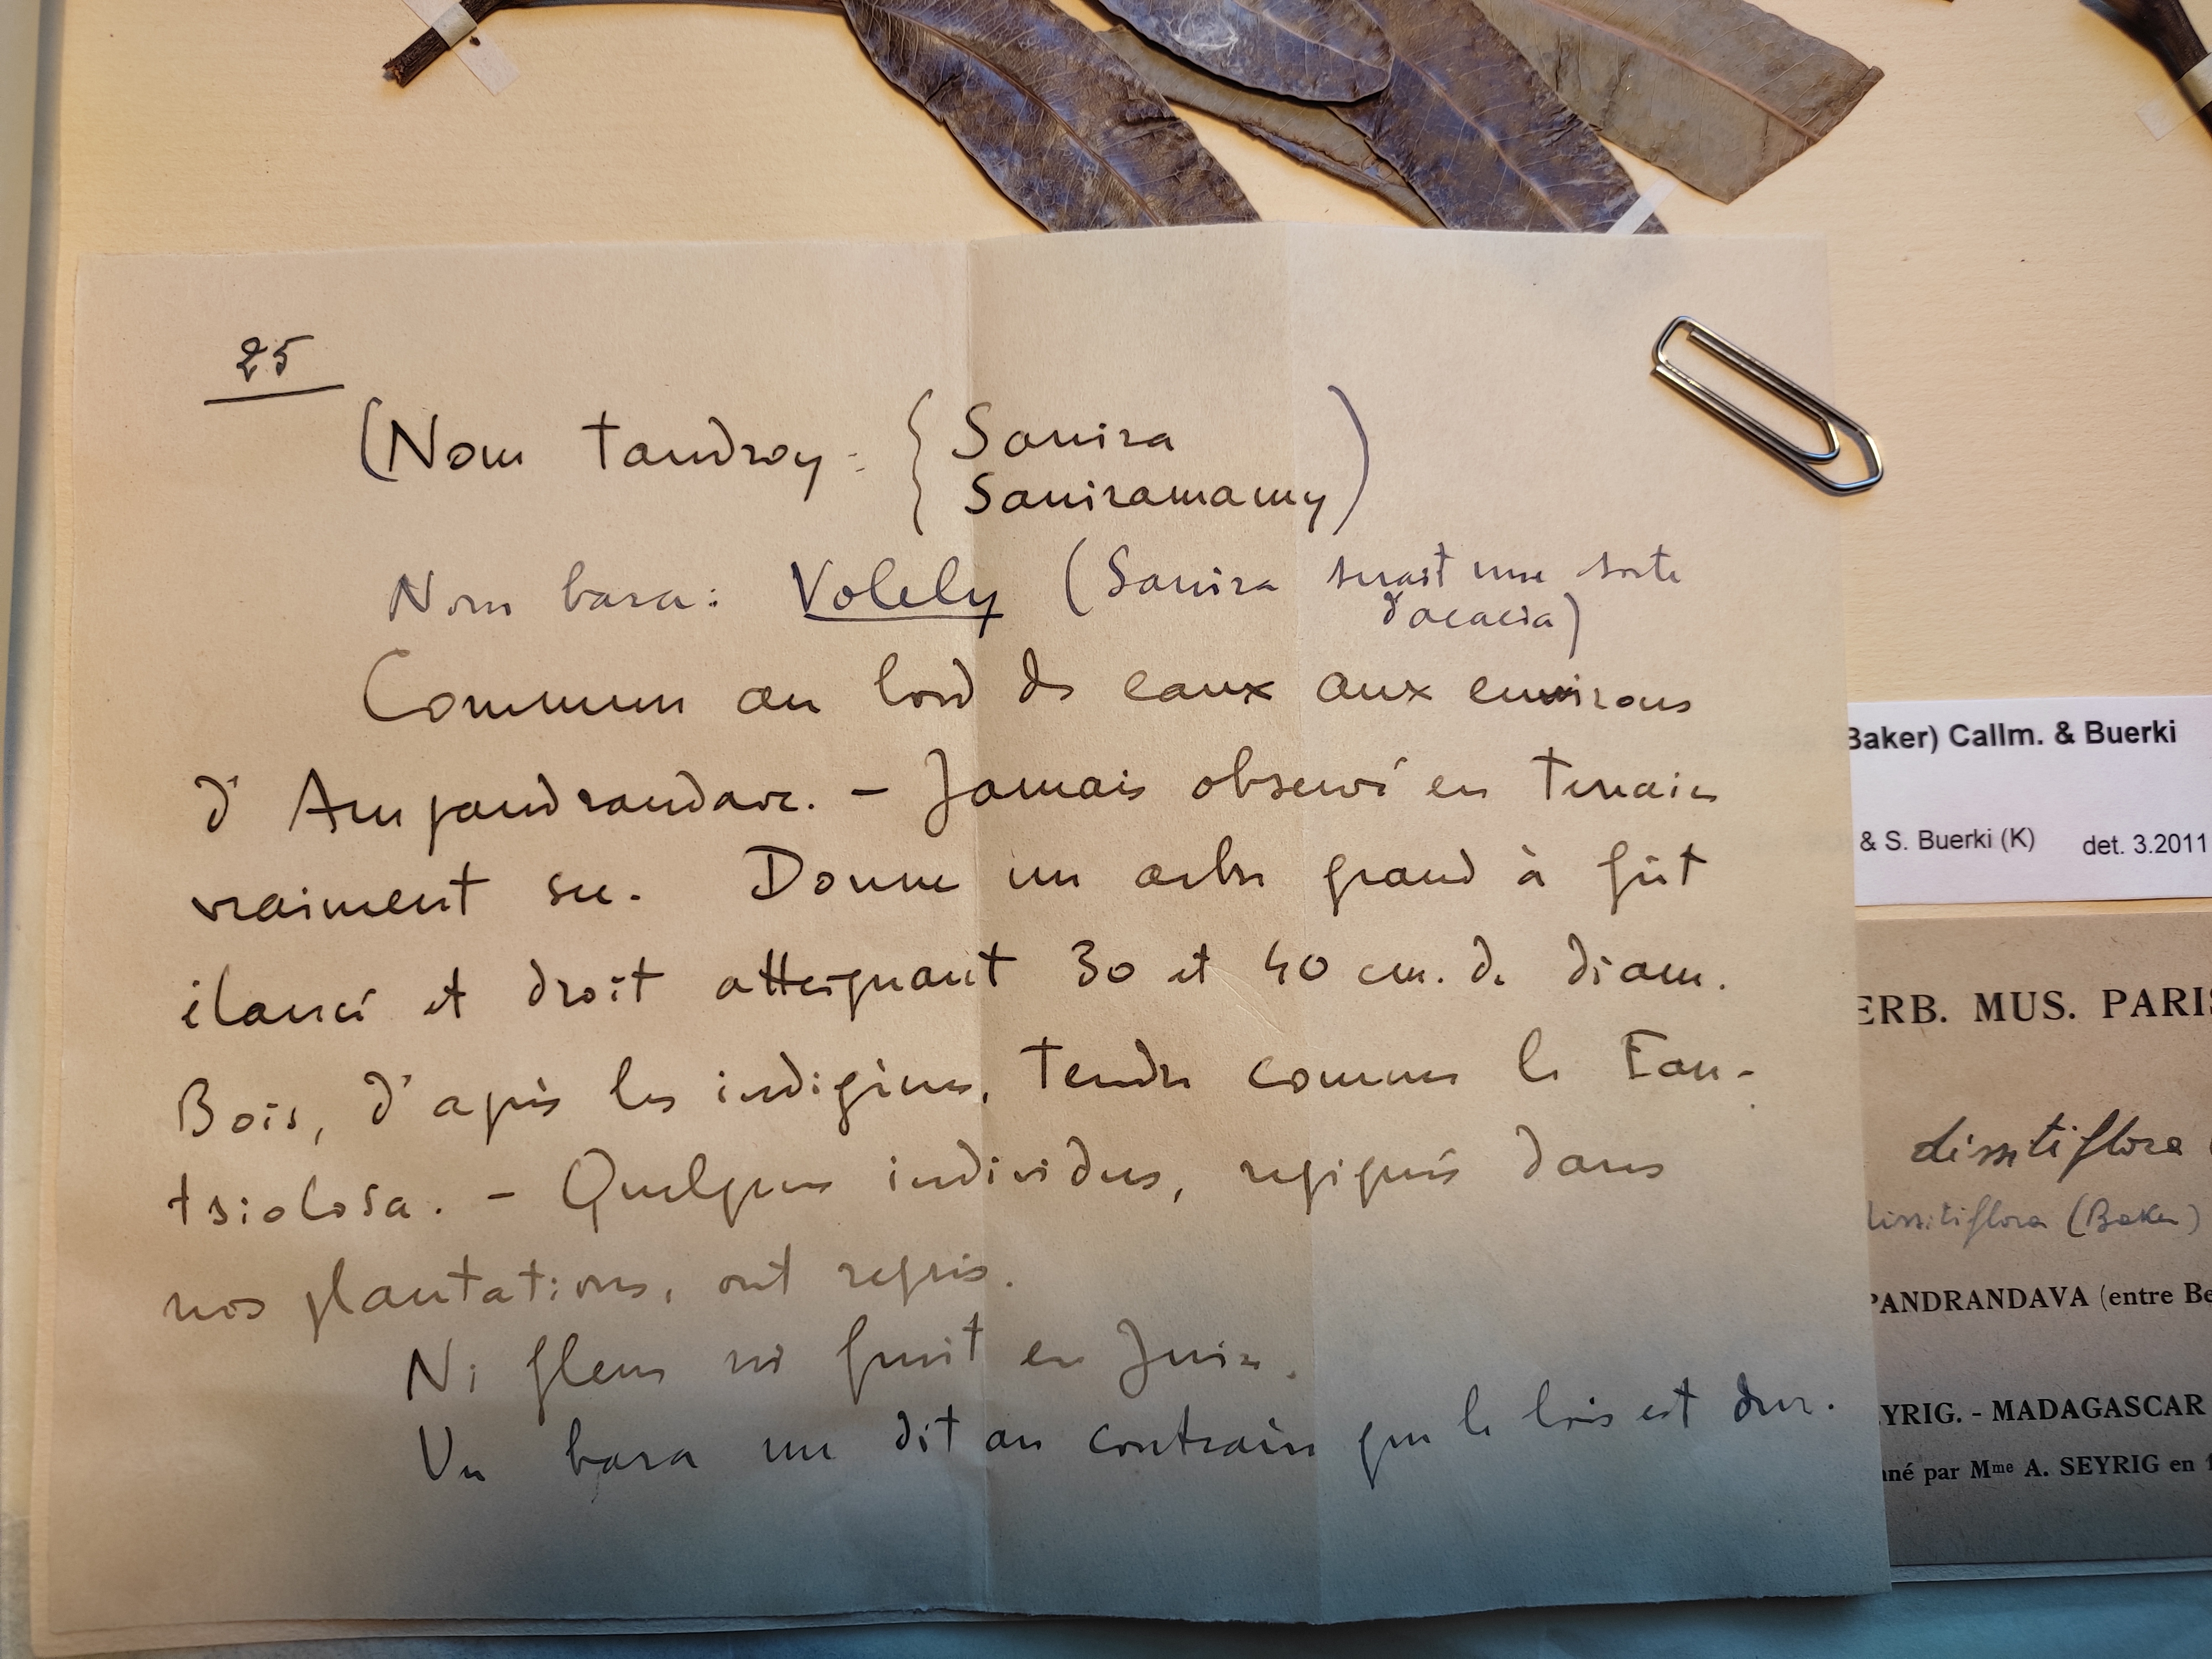 25
(Nom tandroy : { Sanira
Saniramamy)
Nom bara : Volely (Sanira serait une sorte
d'acacia)
Commun au bord des eaux aux environs
d'Ampandrandave. - Jamais observé en terrain
vraiment sec. Donne un arbre grand à fût
élancé et droit atteignant 30 et 40 cm. de diam.
Bois, d'après les indigènes, tendre comme le Fan-
tsiolosa. - Quelques individus, repiqués dans
nos plantations, ont repris.
Ni fleur ni fruit en Juin.
Un bara me dit au contraire que le bois est dur.
Baker) Callm. & Buerki
& S. Buerki (K) det. 3.2011
ERB. MUS. PARIS
dissitiflora
dissitiflora (Baker)
PANDRANDAVA (entre Be
YRIG. - MADAGASCAR
né par Mme A. SEYRIG en 1